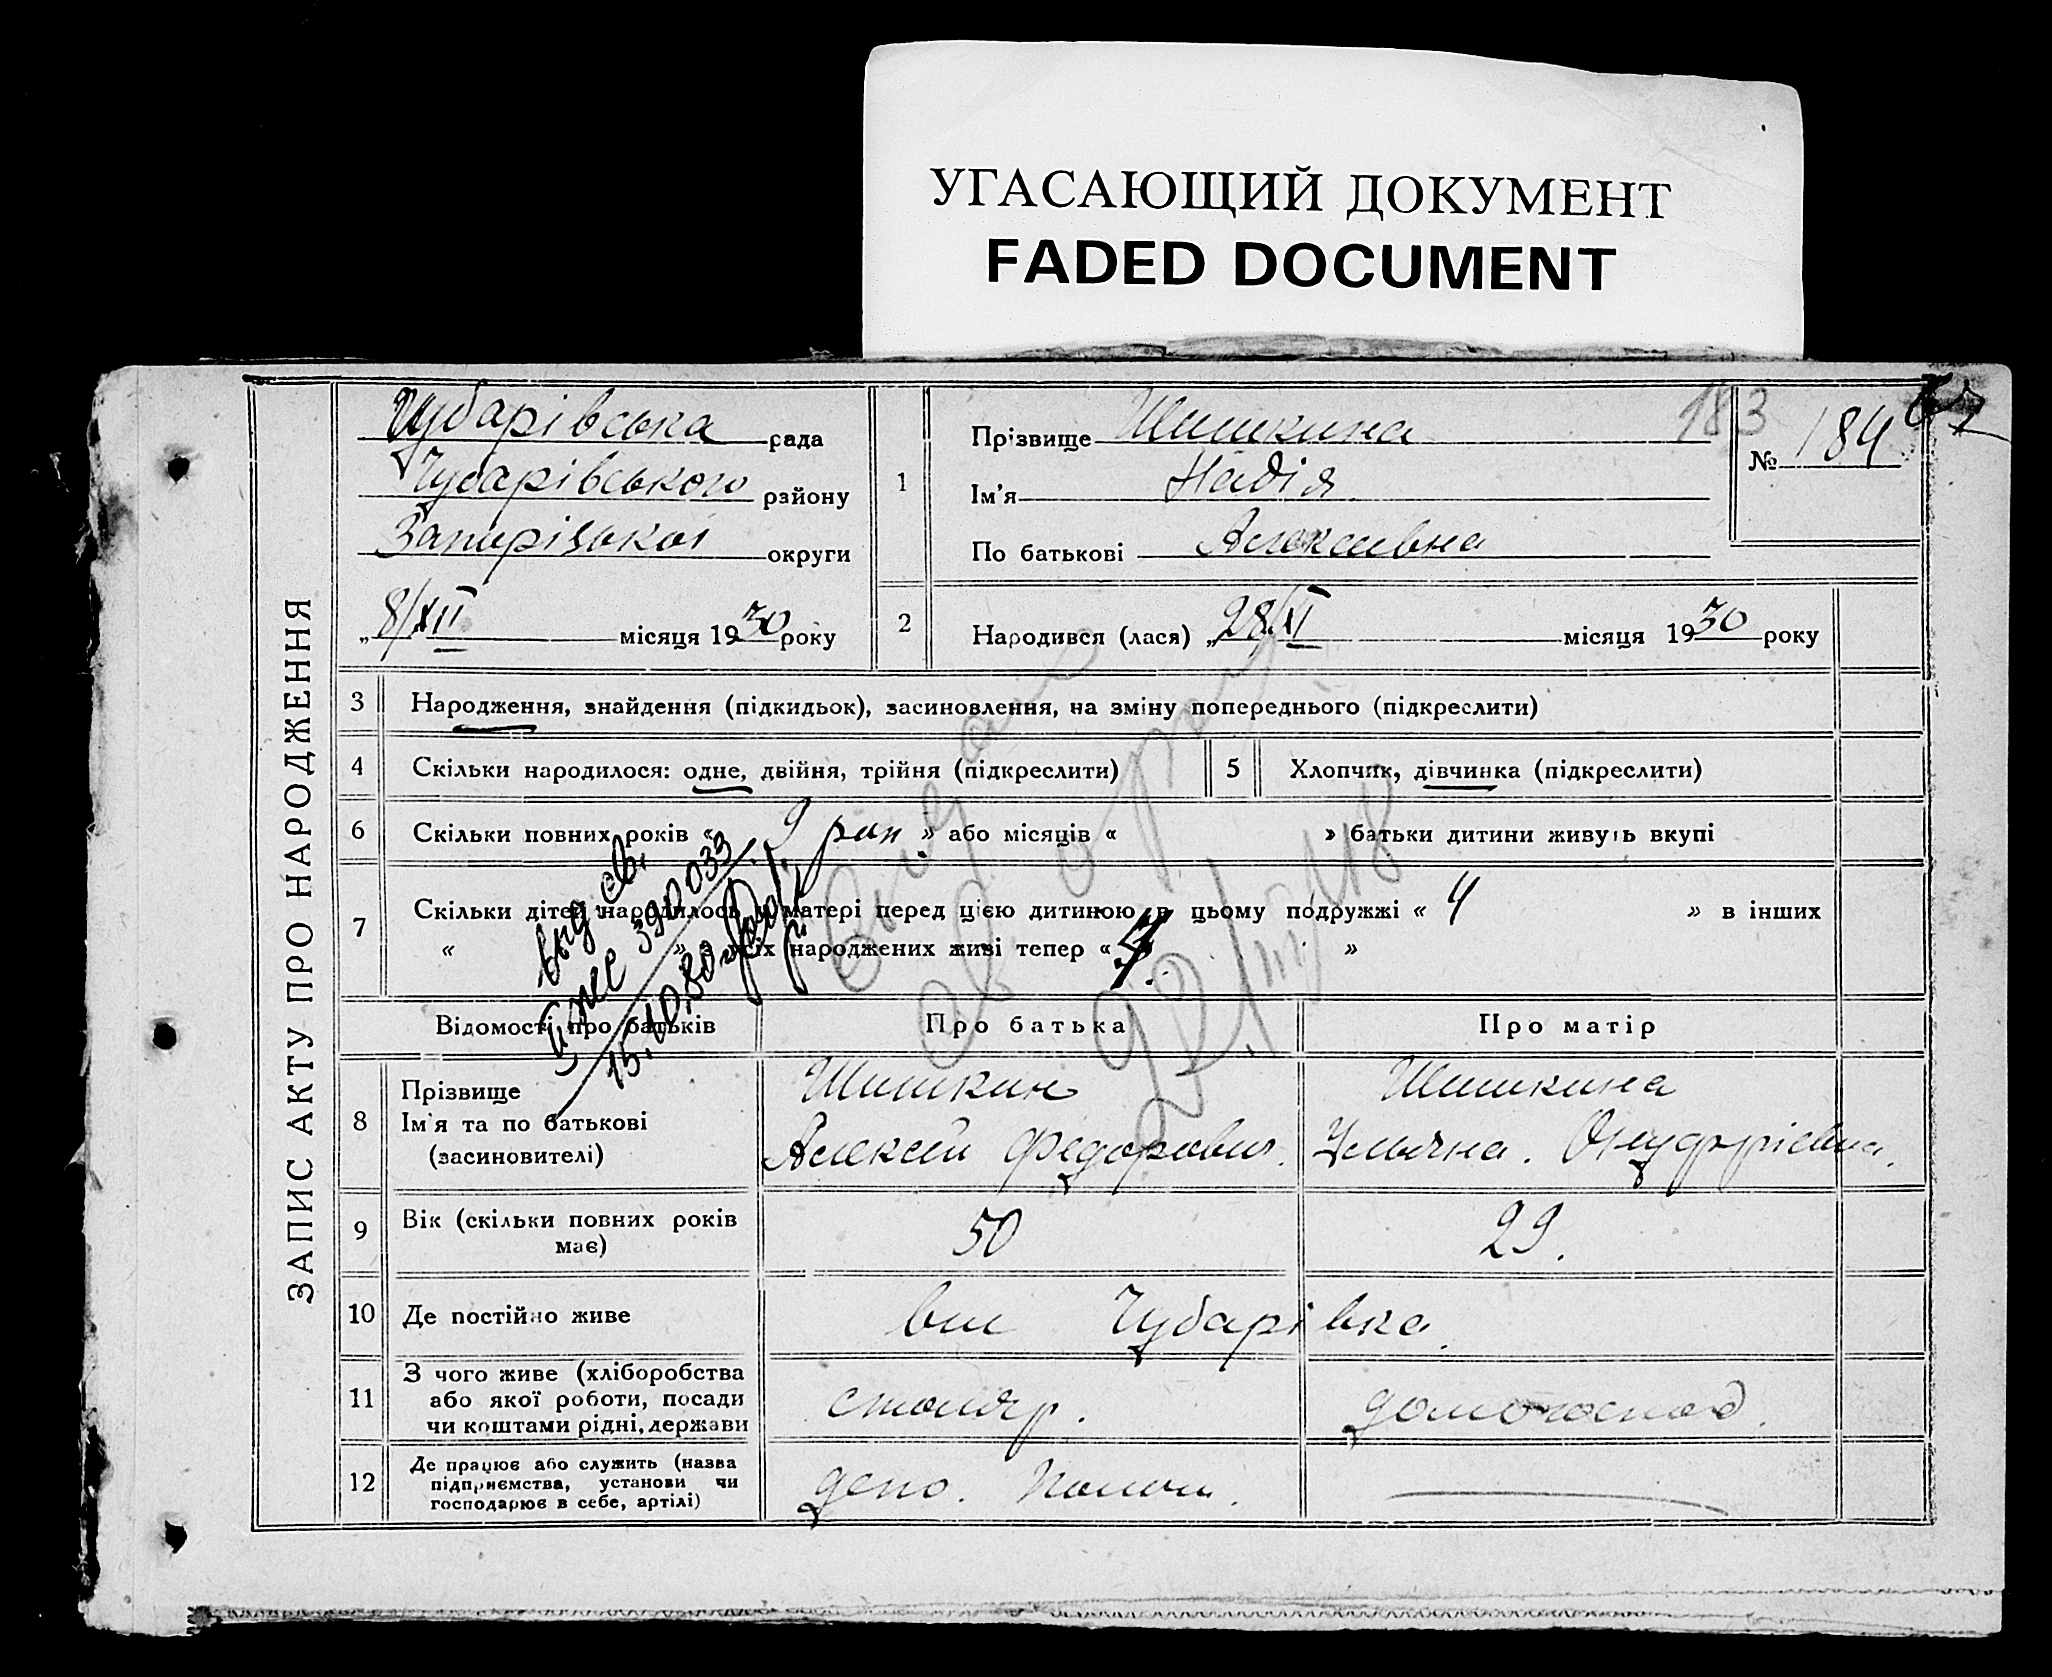 УГАСАЮЩИЙ ДОКУМЕНТ
FADED DOCUMENT
ЗАПИС АКТУ ПРО НАРОДЖЕННЯ
Чубарівська рада
Чубарівського району
Запорізької округи
„8/XII місяця 1930 року
183
№ 184
1 Прізвище Шишкина
Ім'я Надія
По батькові Алексеївна
2 Народився (лася) „28/XI місяця 1930 року
3 Народження, знайдення (підкидьок), засиновлення, на зміну попереднього (підкреслити)
4 Скільки народилося: одне, двійня, трійня (підкреслити)
5 Хлопчик, дівчинка (підкреслити)
6 Скільки повних років « 9 рок » або місяців « » батьки дитини живуть вкупі
7 Скільки дітей народилось у матері перед цією дитиною в цьому подружжі « 4 » в інших
« » з усіх народжених живі тепер « »
выд св.
390033
15.10.80
Відомості про батьків
Про батька
Про матір
8 Прізвище
Ім'я та по батькові
(засиновителі)
Шишкин
Алексей Федорович.
Шишкина
Ульяна. Онуфріевна.
9 Вік (скільки повних років
має)
50
29.
10 Де постійно живе
Чубарівка.
11 З чого живе (хліборобства
або якої роботи, посади
чи коштами рідні, держави
столяр.
домогоспод.
12 Де працює або служить (назва
підприємства, установи чи
господарює в себе, артілі)
депо.